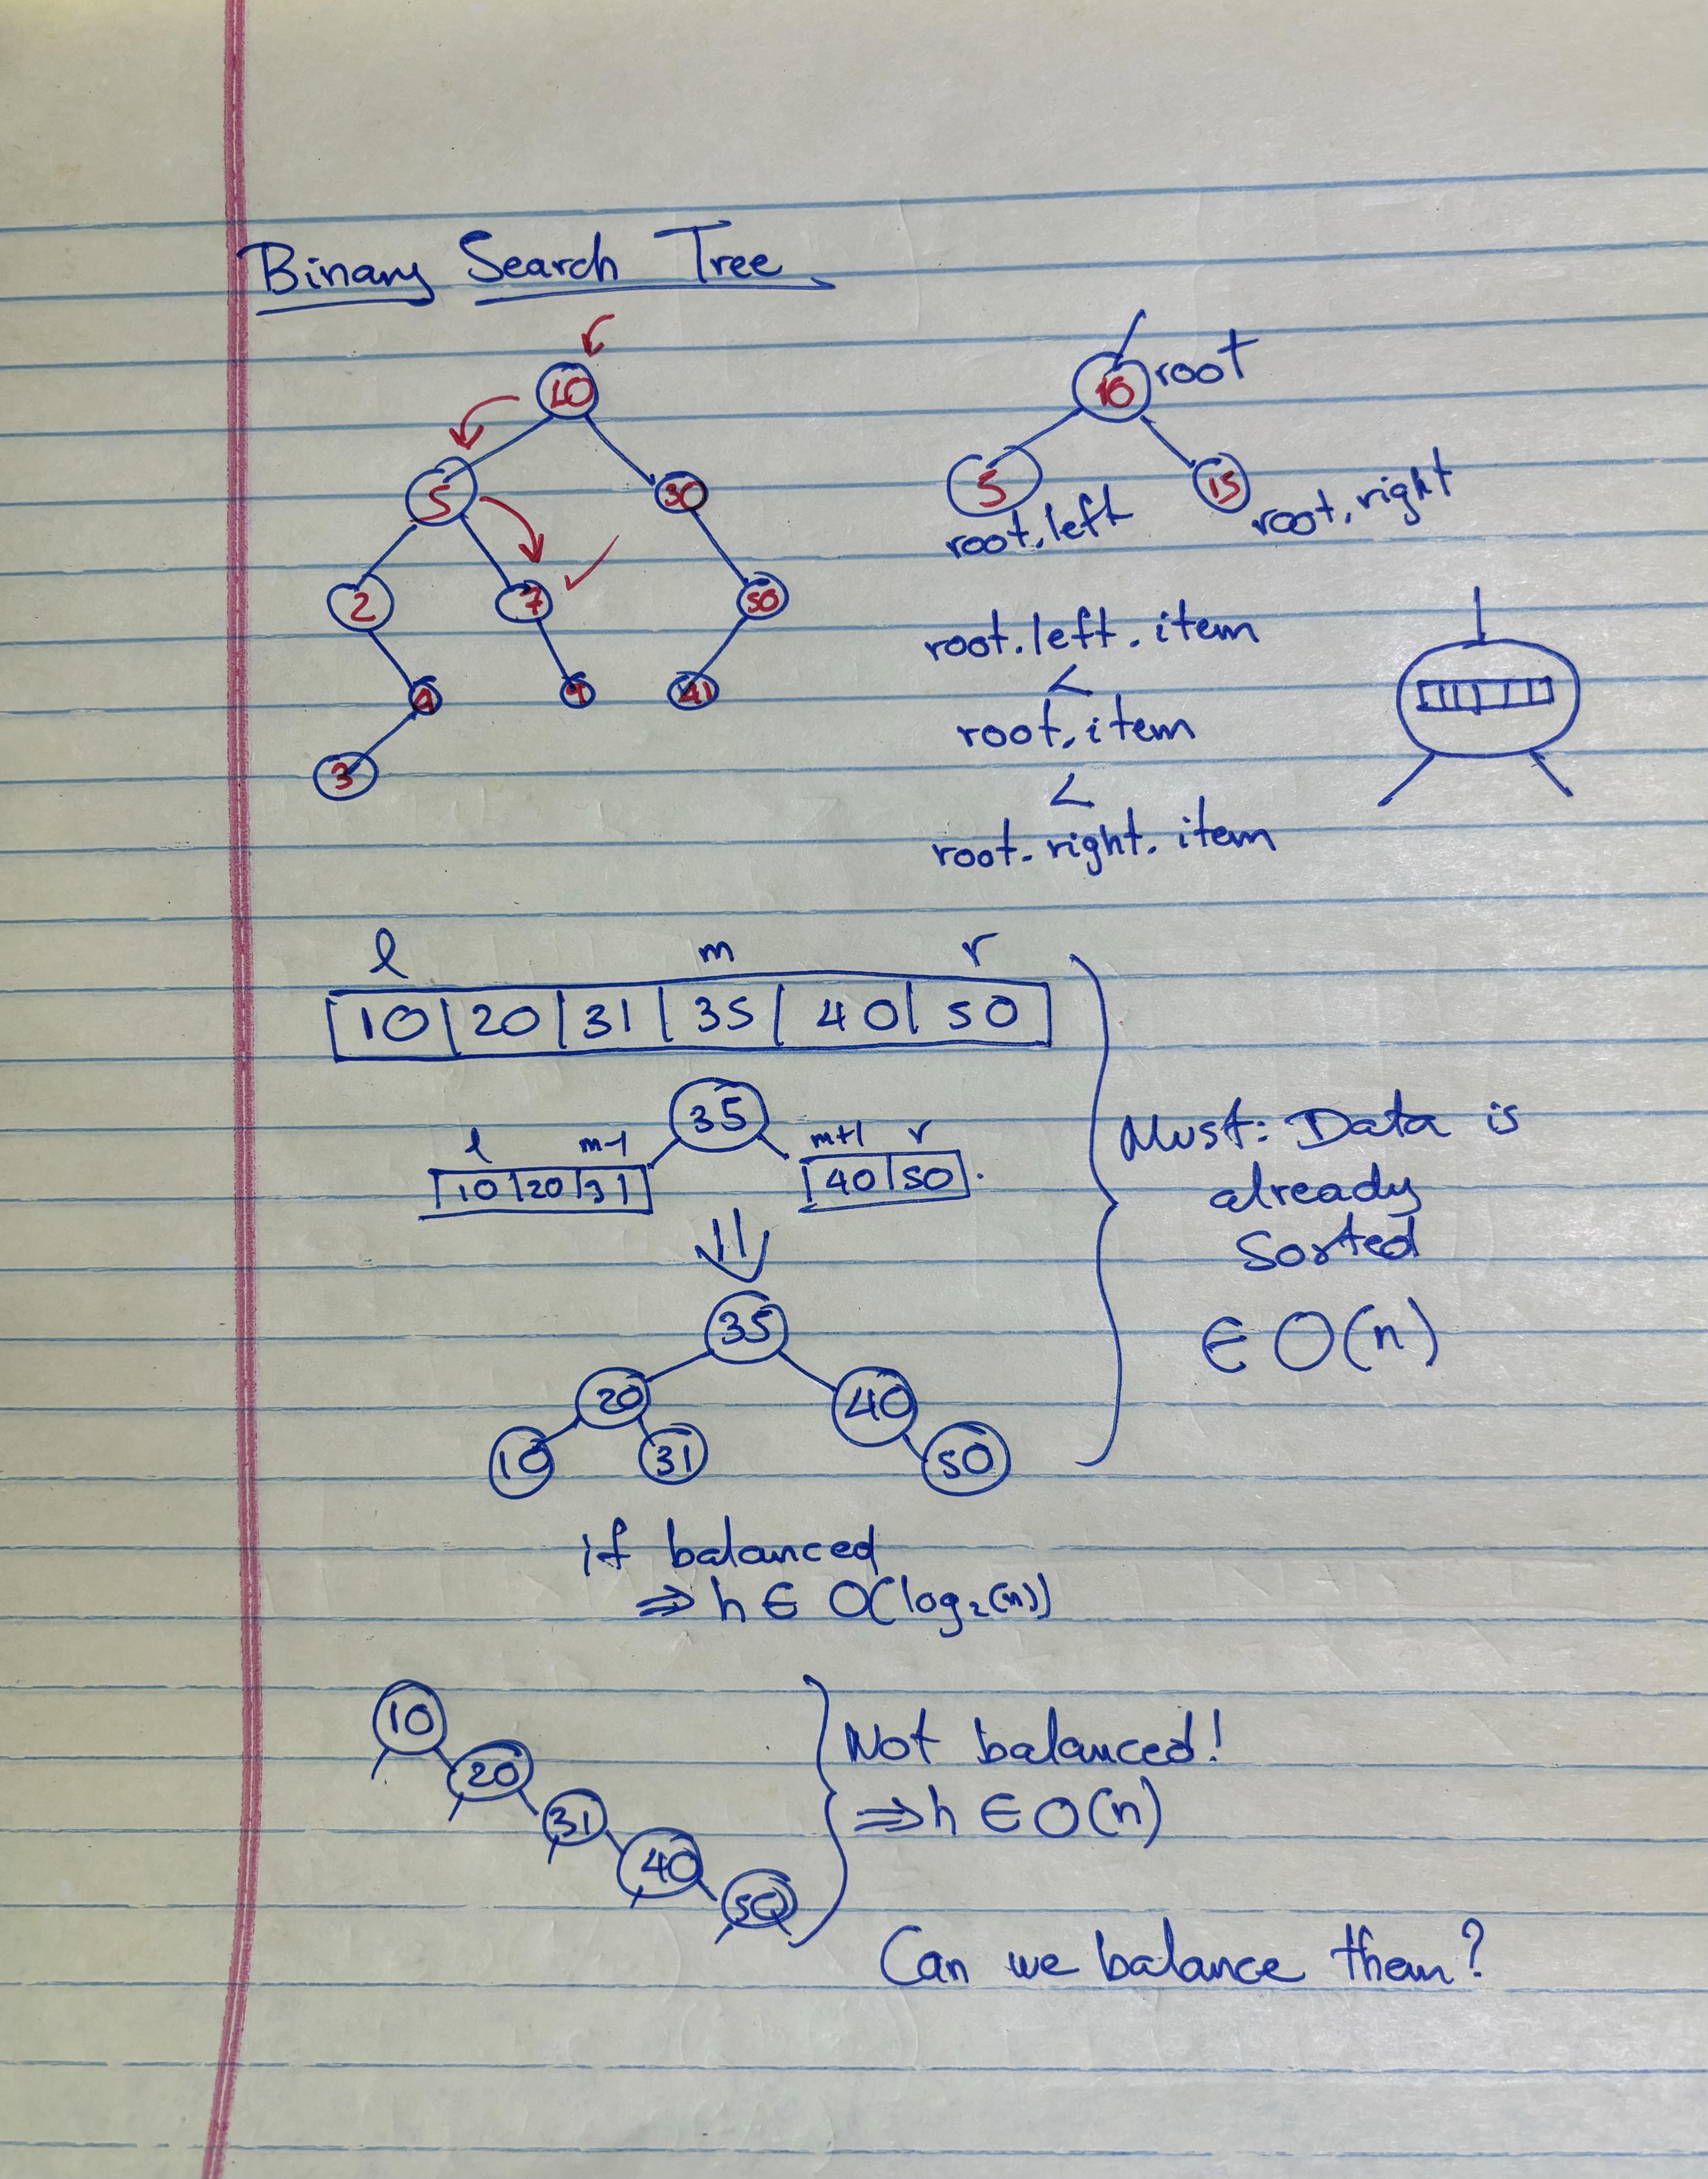 Binary Search Tree
10
5 30
2 7 50
4 9 41
3
10 root
5 15
root.left root.right
root.left.item
<
root.item
<
root.right.item
l m r
10 20 31 35 40 50
35
l m-1 m+1 r
10 20 31 40 50
Must: Data is
already
Sorted
∈ O(n)
35
20 40
10 31 50
if balanced
⇒ h ∈ O(log₂(n))
10
20
31
40
50
Not balanced!
⇒ h ∈ O(n)
Can we balance them?